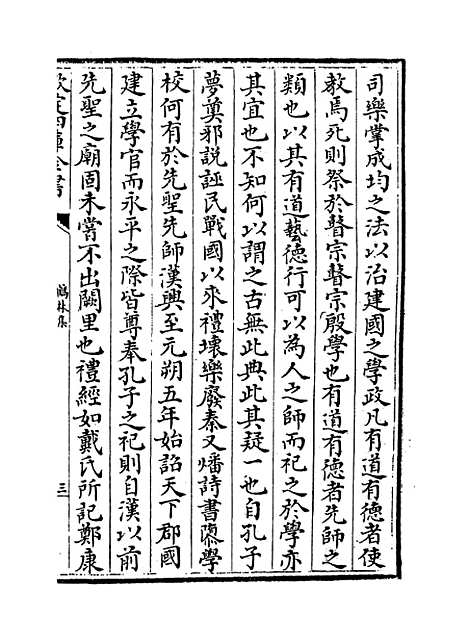 司樂掌成均之法以治建國之學政凡有道有徳者使
教焉死則祭於瞽宗瞽宗殷學也有道有徳者先師之
類也以其有道藝徳行可以為人之師而祀之於學亦
其宜也不知何以謂之古無此典此其疑一也自孔子
夢奠邪說誣民戰國以來禮壞樂廢秦又燔詩書隳學
校何有於先聖先師漢興至元朔五年始詔天下郡國
建立學官而永平之際皆尊奉孔子之祀則自漢以前
先聖之廟固未嘗不出闕里也禮經如戴氏所記鄭康
欽定四庫全書
鶴林集
三